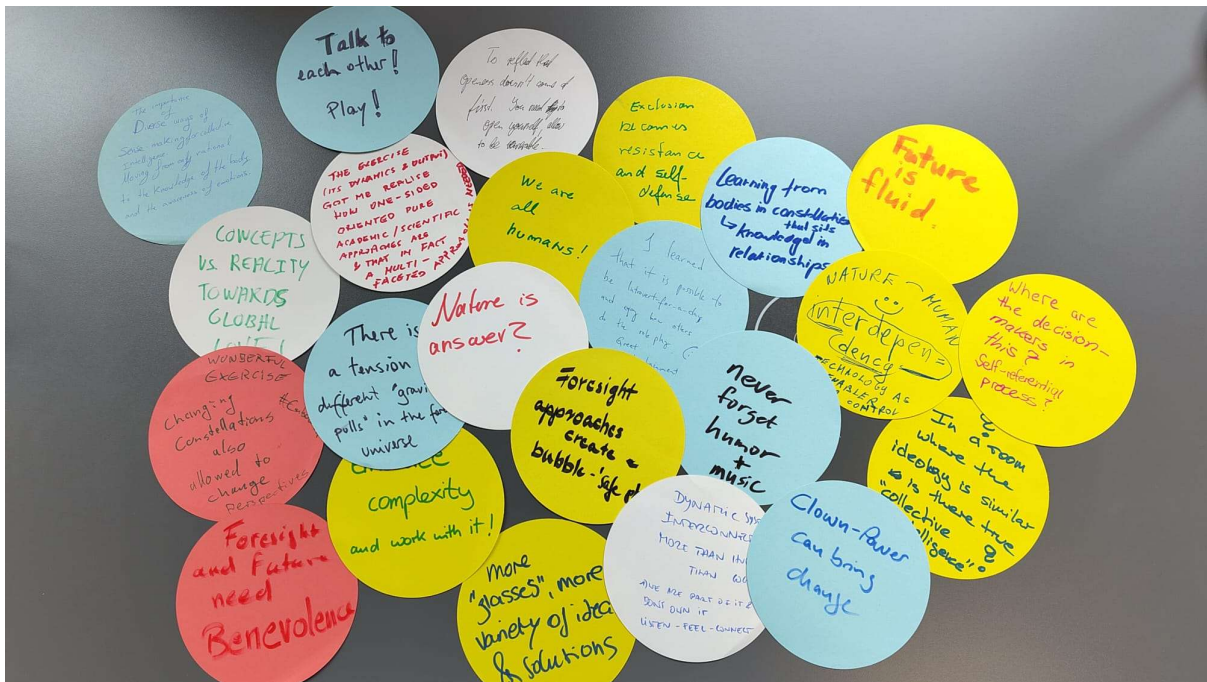 Talk to
each other!
Play!
To reflect that
openness doesn't come at
first. You need to
open yourself, allow
to be
The importance
of
Diverse ways of
Sense making
Moving from rational
to the knowledge of the body
and the awareness of emotions
THE EXERCISE
(ITS DYNAMICS & OUTPUT)
GOT ME REALISE
HOW ONE-SIDED
ORIENTED PURE
ACADEMIC/SCIENTIFIC
APPROACHES ARE
& THAT IN FACT
A MULTI-
FACETED
Exclusion
becomes
resistance
and self-
defense
We are
all
humans!
Learning from
bodies in constellations
that sits
↳ knowledge in
relationships
Future
is
fluid.
CONCEPTS
vs. REALITY
TOWARDS
GLOBAL
I learned
that it is possible to
be
and enjoy how others
do the role play
Great
NATURE - HUMAN
interdepen-
dency
TECHNOLOGY AS
ENABLER
CONTROL
Where are
the decision-
makers in
this?
Self-referential
process?
Nature is
answer?
There is
a tension
different "gravi
pulls" in the
universe
WONDERFUL
EXERCISE
Changing
Constellations
also
allowed to
change
perspectives
Foresight
approaches
create a
bubble-'safe
never
forget
humor
+
music
In a room
where the
ideology is similar
is there true
"collective
lligence"?
complexity
and work with it!
Foresight
and Future
need
Benevolence
more
"glasses", more
variety of idea
& solutions
DYNAMIC
INTERCONNE
MORE THAN
THAN
WE ARE PART OF IT &
DONT OWN IT
LISTEN - FEEL - CONNECT
Clown-Power
can bring
change